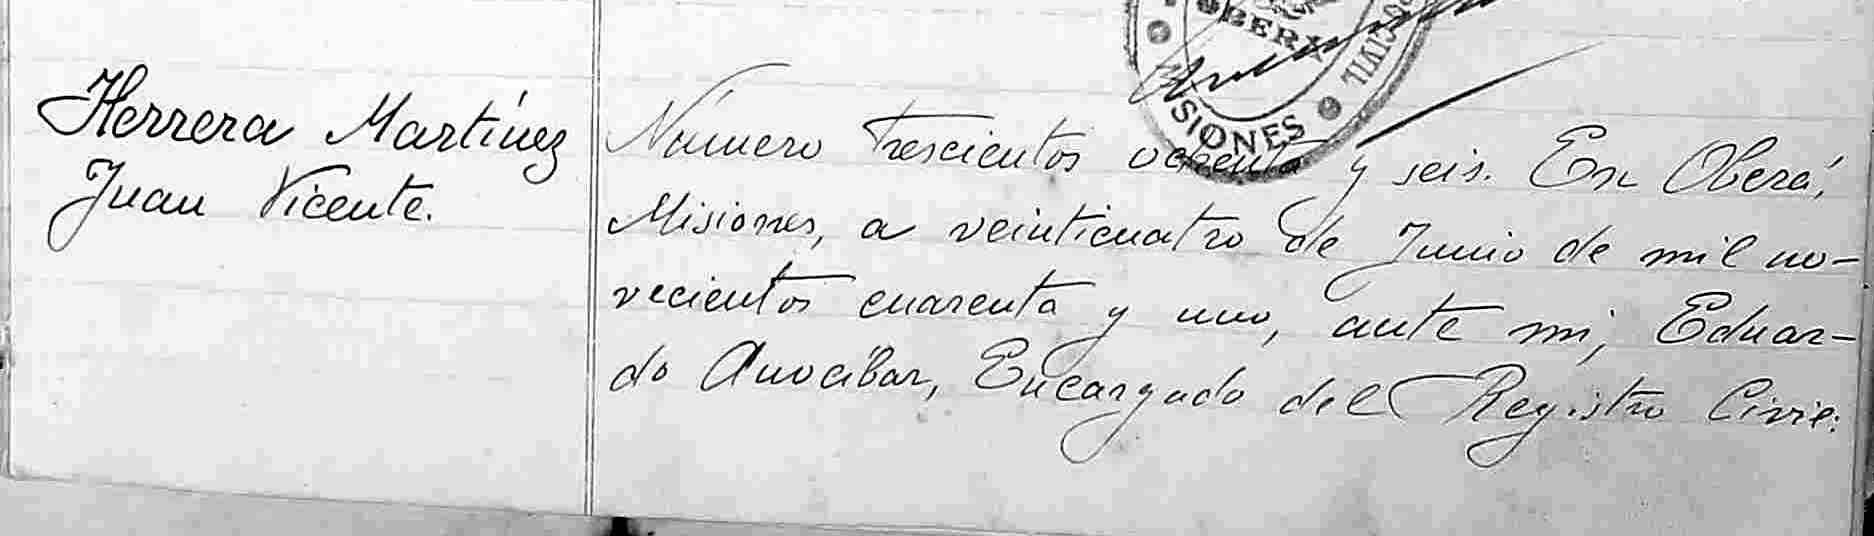 OBERÁ
CIVIL
MISIONES
Herrera Martínez
Juan Vicente.
Número trescientos ochenta y seis. En Oberá,
Misiones, a veinticuatro de Junio de mil no-
vecientos cuarenta y uno, ante mi, Eduar-
do Anocibar, Encargado del Registro Civil: